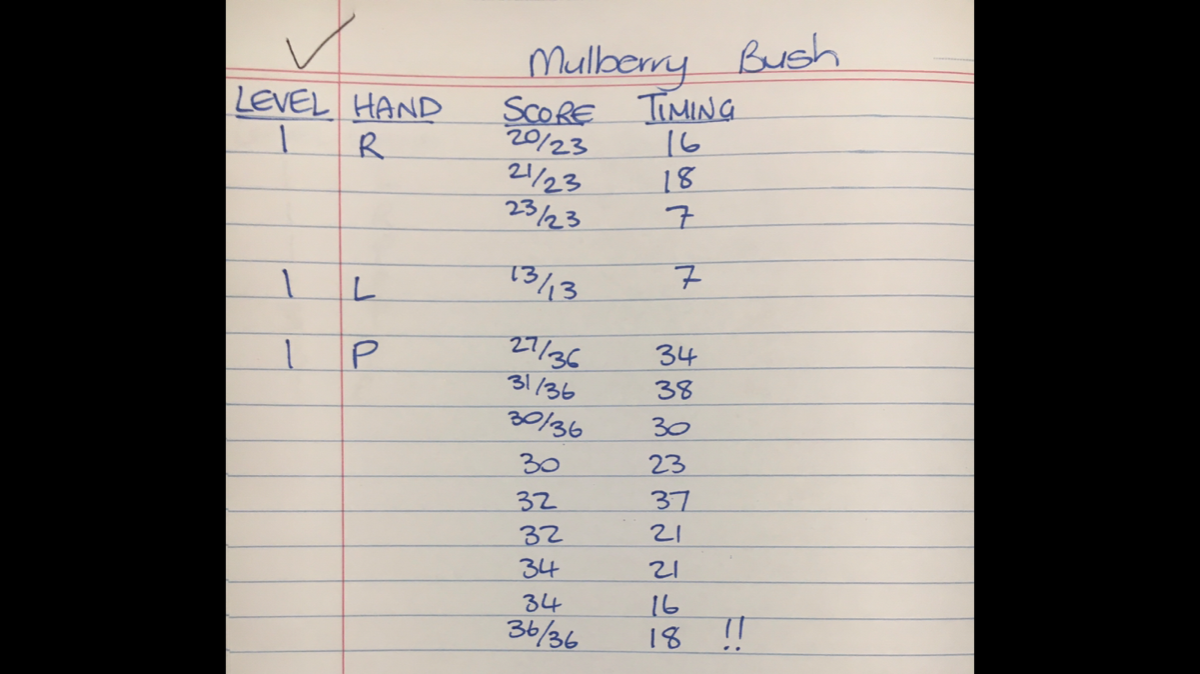 Mulberry Bush
LEVEL HAND SCORE TIMING
1 R 20/23 16
21/23 18
23/23 7
1 L 13/13 7
1 P 27/36 34
31/36 38
30/36 30
30 23
32 37
32 21
34 21
34 16
36/36 18 !!